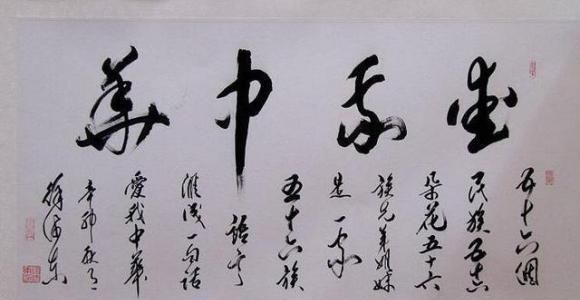 爱我中華
五十六個
民族五十六
朵花五十六
族兄弟姐妹
是一家
五十六族
語言
滙成一句話
愛我中華
辛卯秋月